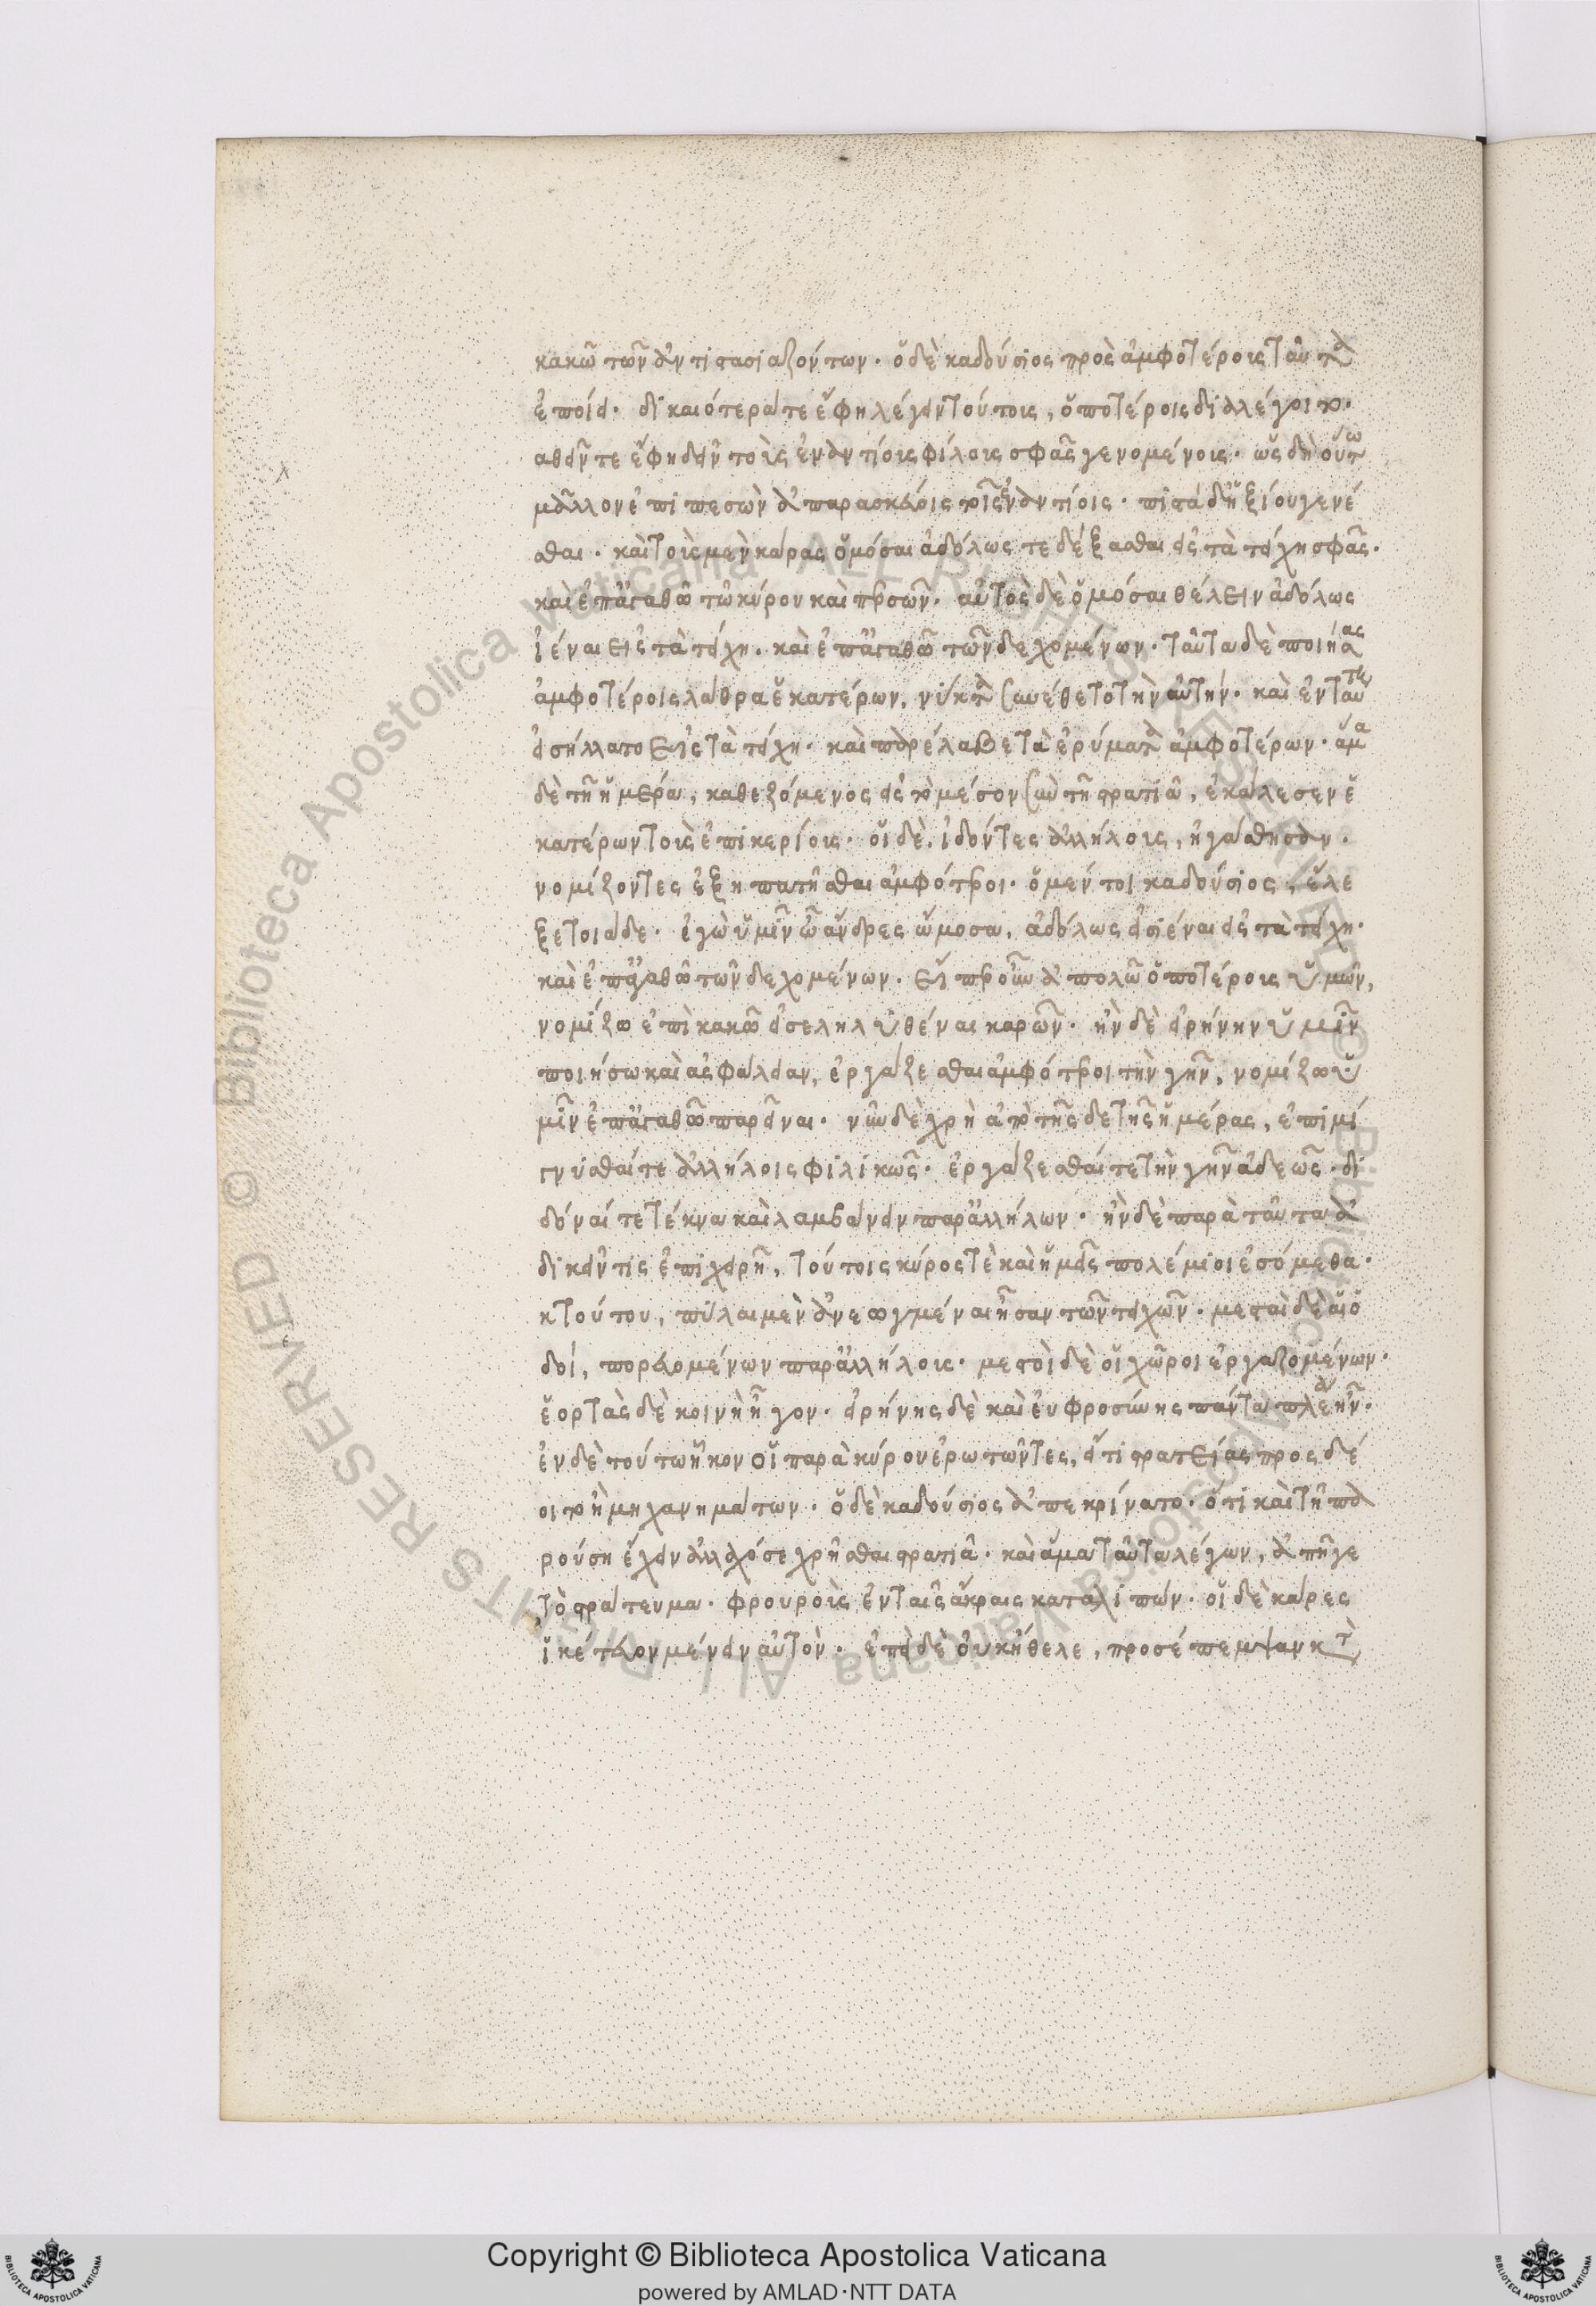 κακῶ τῶν ἀντιστασιαζόντων. ὁ δὲ καδούσιος πρὸς ἀμφοτέρους ταῦτα
ἐποίει. δικαιότερά τε ἔφη λέγειν τούτους, ὁποτέροις διαλέγοιτο.
λαθεῖν τε ἔφη δεῖν τοὺς ἐναντίους φίλους σφᾶς γενομένους. ὡς δὴ οὕτω
μᾶλλον ἐπιπεσὼν ἀπαρασκεύοις τοῖς ἐναντίοις. πιστὰ δ' ἠξίου γενέ
σθαι. καὶ τοὺς μὲν κάρας ὀμόσαι ἀδόλως τε δέξασθαι εἰς τὰ τείχη σφᾶς.
καὶ ἐπ' ἀγαθῶ τῶ κύρου καὶ περσῶν. αὐτὸς δὲ ὀμόσαι θέλειν ἀδόλως
ἰέναι εἰς τὰ τείχη. καὶ ἐπ' ἀγαθῶ τῶν δεχομένων. ταῦτα δὲ ποιήσας
ἀμφοτέροις λάθρα ἑκατέρων, νύκτα συνέθετο τὴν αὐτήν. καὶ ἐν ταύτη
εἰσήλλατο εἰς τὰ τείχη. καὶ παρέλαβε τὰ ἐρύματα ἀμφοτέρων. ἅμα
δὲ τῆ ἡμέρα, καθεζόμενος εἰς τὸ μέσον σὺν τῆ στρατιᾶ, ἐκάλεσεν ἑ
κατέρων τοὺς ἐπικερίους. οἱ δὲ ἰδόντες ἀλλήλους, ἠγάσθησαν.
νομίζοντες ἐξηπατῆσθαι ἀμφότεροι. ὁ μέντοι καδούσιος, ἔλε
ξε τοιάδε. ἐγὼ ὑμῖν ὦ ἄνδρες ὤμοσα, ἀδόλως εἰσιέναι εἰς τὰ τείχη.
καὶ ἐπ' ἀγαθῶ τῶν δεχομένων. εἰ μὲν οὖν ἀπολῶ ὁποτέρους ὑμῶν,
νομίζω ἐπὶ κακῶ εἰσεληλυθέναι καρῶν. ἢν δὲ εἰρήνην ὑμῖν
ποιήσω καὶ ἀσφάλειαν, ἐργάζεσθαι ἀμφότεροι τὴν γῆν, νομίζω ὑ
μῖν ἐπ' ἀγαθῶ παρεῖναι. νῦν δὲ χρὴ ἀπὸ τῆσδε τῆς ἡμέρας, ἐπιμί
γνυσθαί τε ἀλλήλοις φιλικῶς. ἐργάζεσθαί τε τὴν γῆν ἀδεῶς. δι
δόναί τε τέκνα καὶ λαμβάνειν παρ' ἀλλήλων. ἢν δὲ παρὰ ταῦτα ἀ
δικεῖν τις ἐπιχειρῆ, τούτοις κῦρός τε καὶ ἡμεῖς πολέμιοι ἐσόμεθα.
κ τούτου, πύλαι μὲν ἀνεωγμέναι ἦσαν τῶν τειχῶν. μεσταὶ δὲ αἱ ὁ
δοί, πορευομένων παρ' ἀλλήλους. μεστοὶ δὲ οἱ χῶροι ἐργαζομένων.
ἑορτὰς δὲ κοινῆ ἦγον. εἰρήνης δὲ καὶ εὐφροσύνης πάντα πλέα ἦν.
ἐν δὲ τούτω ἧκον οἱ παρὰ κύρου ἐρωτῶντες, εἴ τι στρατείας προσδέ
οιτο ἢ μηχανημάτων. ὁ δὲ καδούσιος ἀπεκρίνατο. ὅτι καὶ τῆ πα
ρούση ἔχειν ἀλλαχόσε χρῆσθαι στρατιᾶ. καὶ ἅμα ταῦτα λέγων, ἀπῆγε
τὸ στράτευμα. φρουροὺς ἐν ταῖς ἄκραις καταλιπών. οἱ δὲ κάρες
ἱκέτευον μένειν αὐτόν. ἐπεὶ δὲ οὐκ ἤθελε, προσέπεμψαν κ